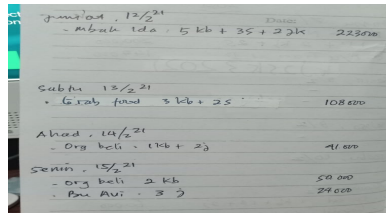 Jum'at . 12/2 21
- Mbak Ida . 5 kb + 3S + 2jk 223000
Sabtu 13/2 21
- Grab food 3 kb + 2S 108000
Ahad . 14/2 21
- Org beli . 1kb + 2j 41000
Senin . 15/2 21
- Org beli 2 kb 50 000
- Bu Avi . 3 j 24000